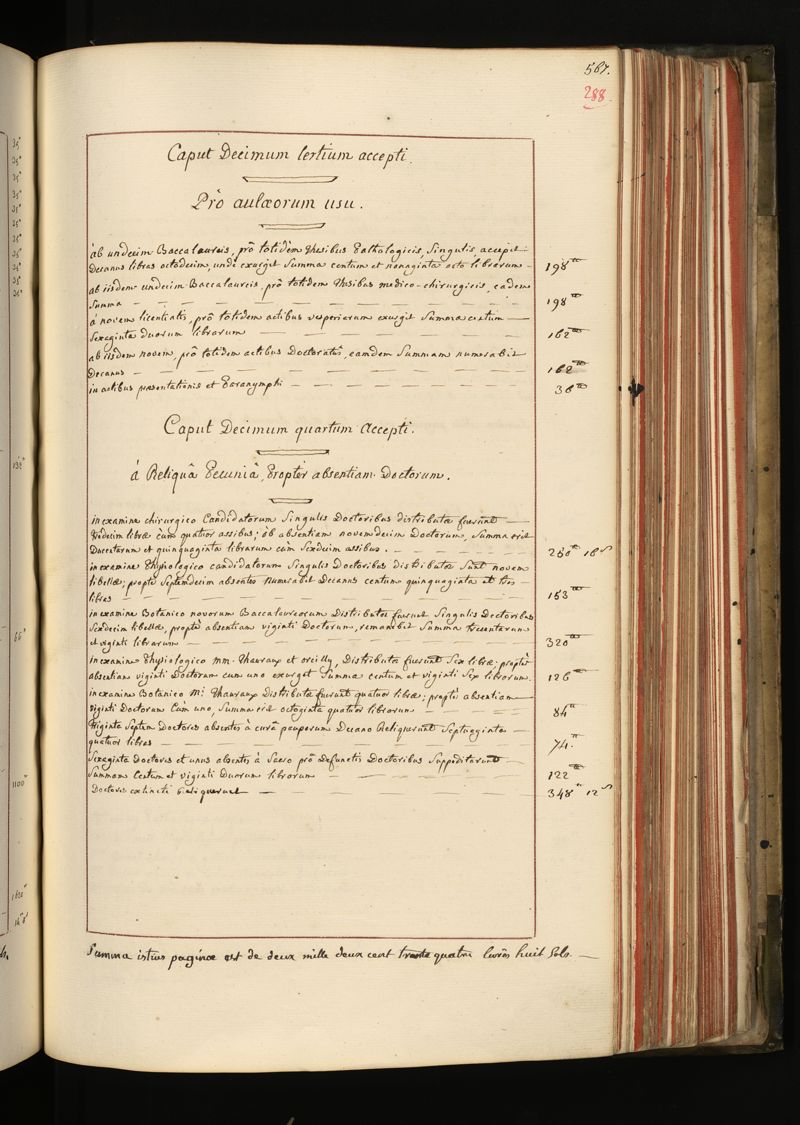 567.
288
Caput Decimum tertium accepti.
Pro aulæorum usu.
ab undecim Baccalaureis, prô totidèm thesibus Pathologicis, singulis, accepit
Decanus libras octodecim, undè exurget summa centum et nonaginta octo librarum - 198
ab iisdem undecim Baccalaureis, prô totidem thesibus medico-chirurgicis, eadem
summa 198
à novem licentiatis, prô totidem actibus vesperiarum exurgit summa centum
sexaginta duorum librarum 162
ab iisdem novem, prô totidem actibus Doctoratûs, eamdem summam numerabit
Decanus 162
in actibus præsentationis et Paranymphi 36
Caput Decimum quartum accepti.
á Reliquâ Pecuniâ, Proptèr absentiam Doctorum.
in examine chirurgico Candidatorum singulis Doctoribus distributæ fuerunt
tredecim libræ cùm quatuor assibus; ob absentiam novemdecim Doctorum, summa erit
Ducentarum et quinquaginta librarum cùm sexdecim assibus. 250 16 s
in examine Physiologico candidatorum singulis Doctoribus Distributæ sunt novem
libellæ; proptèr septemdecim absentes numerabit Decanus centum quinquaginta et tres
libras 153
in examine Botanico novorum Baccalaureorum Distributæ fuerunt singulis Doctoribus
sexdecim libellæ, proptèr absentiam viginti Doctorum, remanebit summa trecentarum
et viginti librarum 320
in examine Physiologico mm. Thauraux et oreilly, Distributæ fuerunt sex libræ; proptèr
absentiam viginti Doctorum cum uno exurget summa centum et viginti sex librarum. 126
in examine Botanico Mi. Thauraux Distributæ fuerunt quatuor libræ; proptèr absentiam
viginti Doctorum cùm uno, summa erit octoginta quatuor librarum 84
triginta septem Doctores absentes à curâ pauperum Decano Reliquerunt septuaginta
quatuor libras 74.
sexaginta Doctores et unus absentes à sacro prô Defunctis Doctoribus suppeditarunt
summam centum et viginti Duorum librarum 122
Doctores extincti Reliquerunt 348 12 s
Summa istius paginæ est de deux mille deux cent trente quatre livres huit sols.
135
66
1100